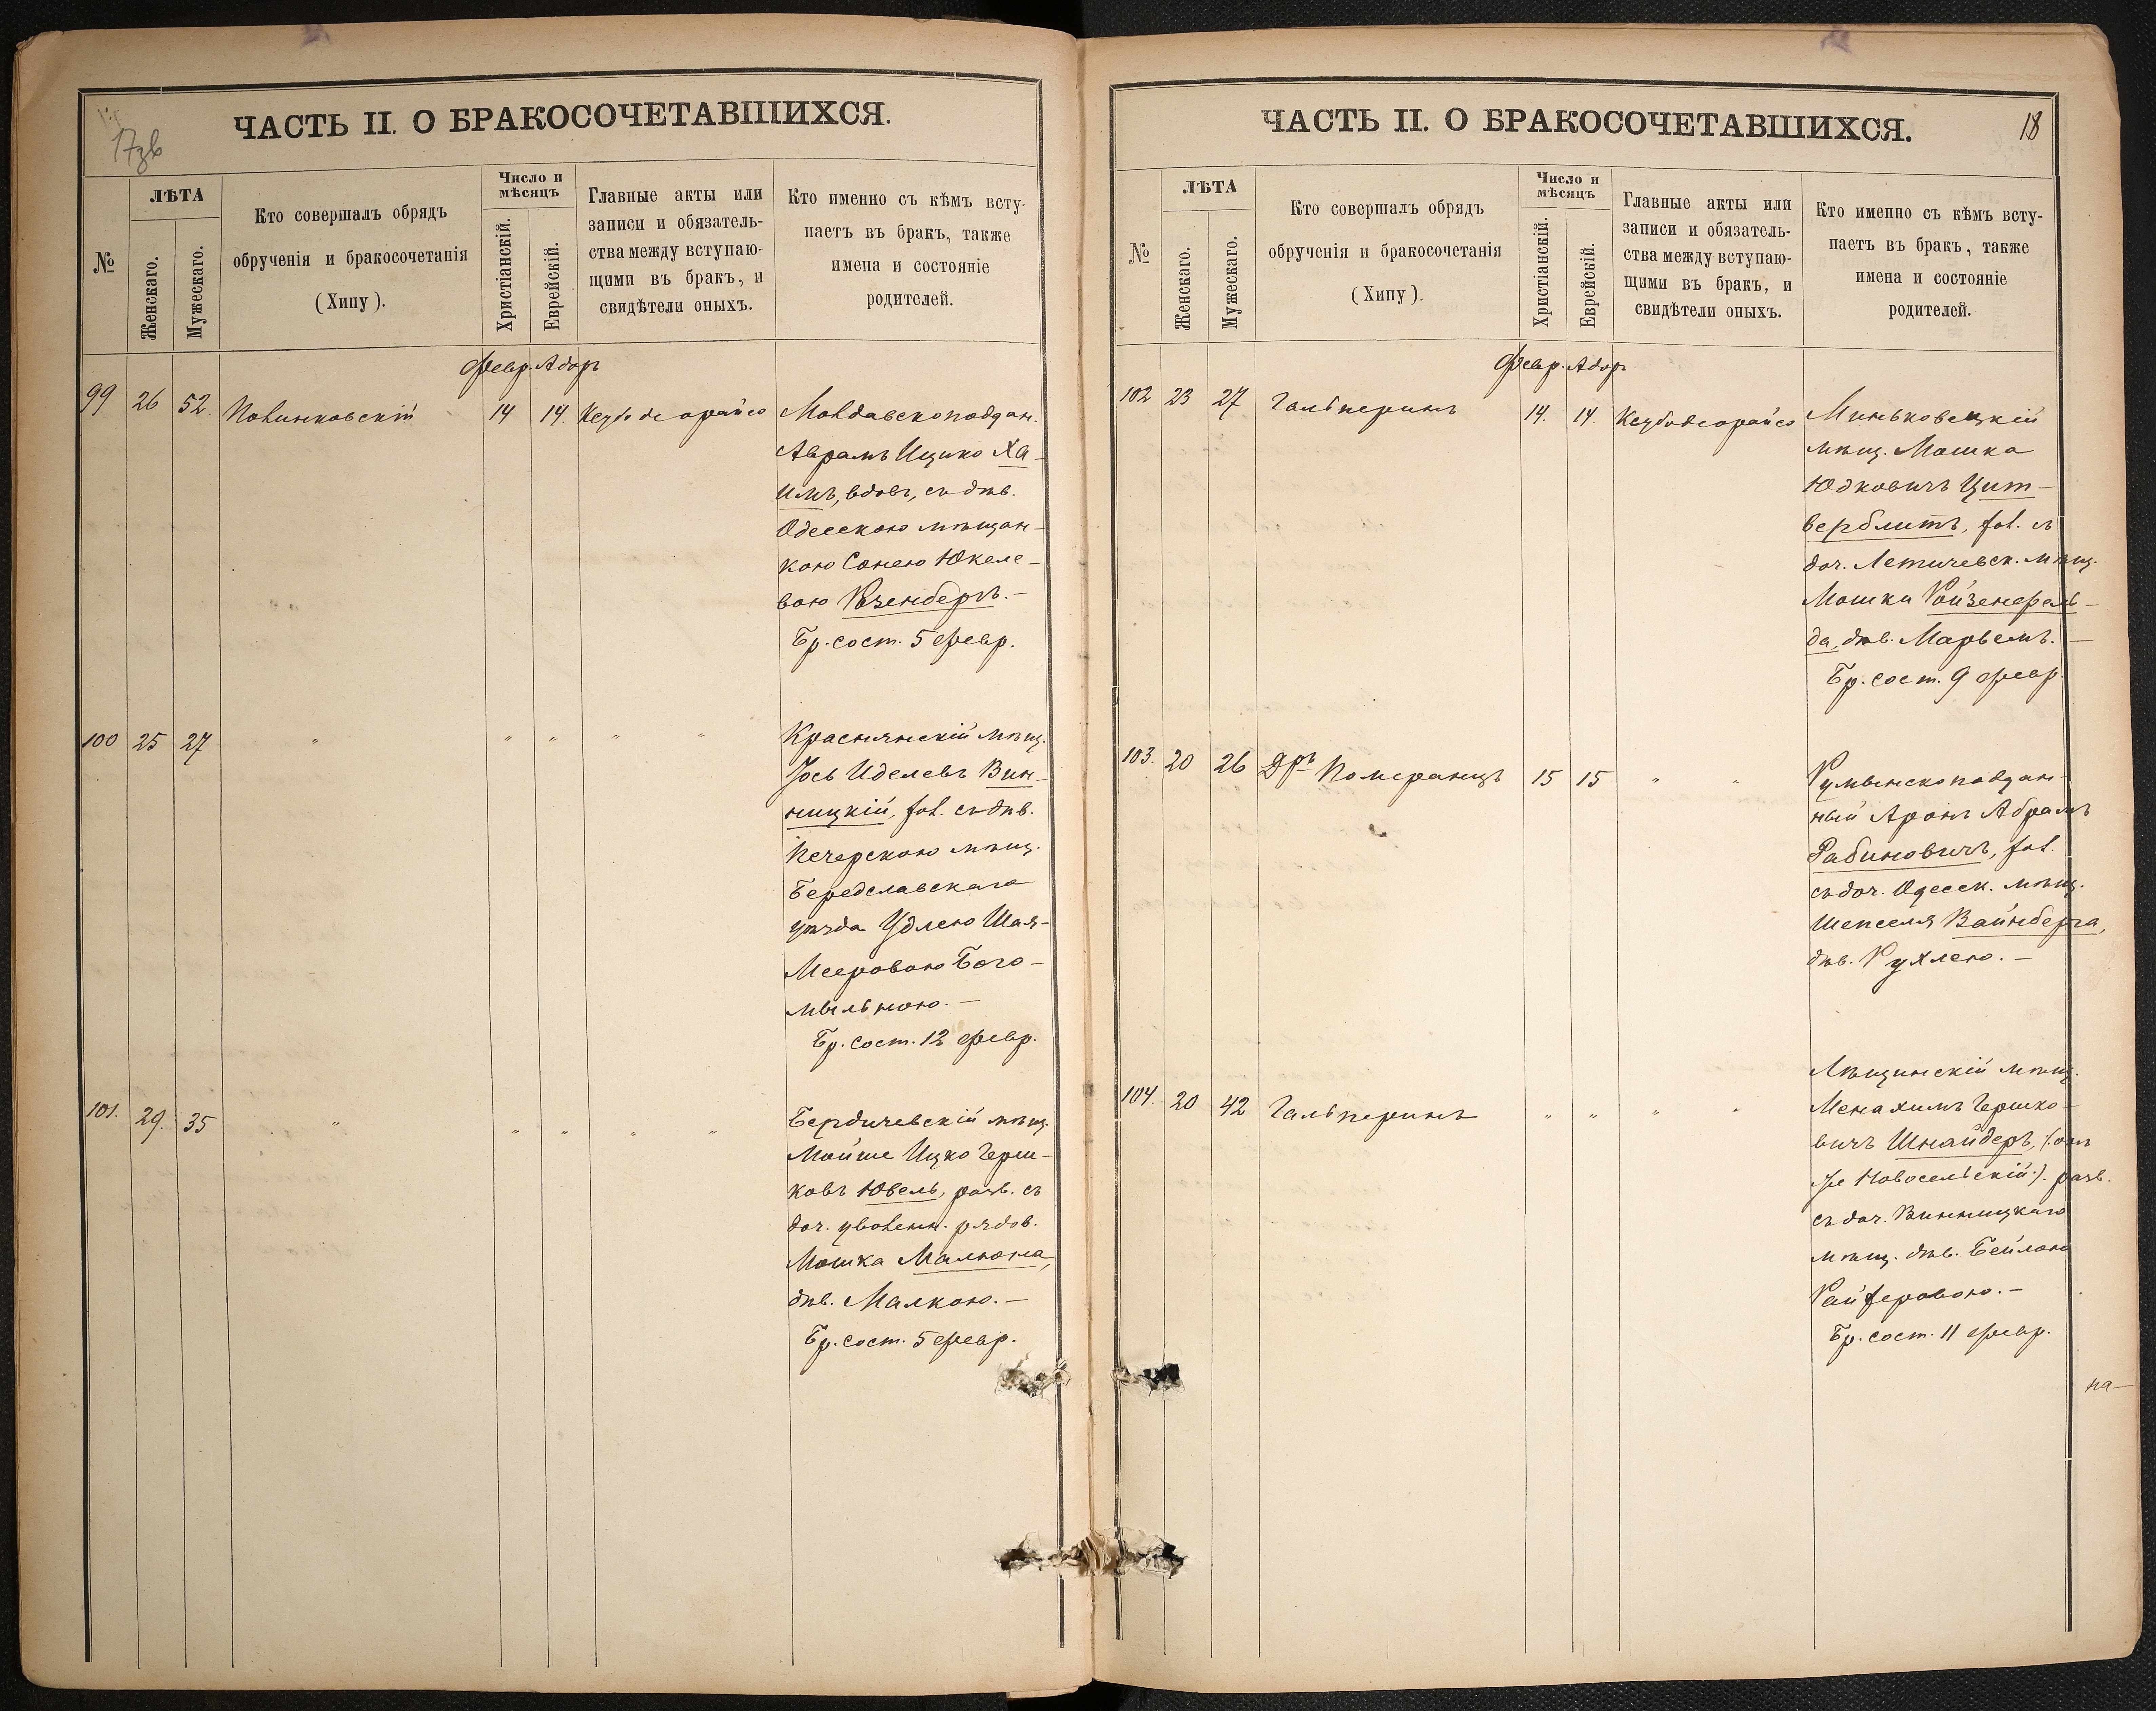 17зв
ЧАСТЬ II. О БРАКОСОЧЕТАВШИХСЯ.
№
ЛѢТА
Женскаго.
Мужескаго.
Кто совершалъ обрядъ
обрученія и бракосочетанія
(Хипу).
Число и
мѣсяцъ
Христіанскій.
Еврейскій.
Главные акты или
записи и обязатель-
ства между вступаю-
щими въ бракъ, и
свидѣтели оныхъ.
Кто именно съ кѣмъ всту-
паетъ въ бракъ, также
имена и состояніе
родителей.
Февр. Адоръ
99 26 52. Полинковскій 14 14. Кезубо деорайсо
Молдавскоподдан.
Аврамъ Ицико Ха-
имъ, вдов., съ дѣв.
Одесскою мѣщан-
кою Сонею Юкеле-
вою Розенбергъ.-
Бр. сост. 5 февр.
100 25 27 " " " " "
Краснянскій мѣщ.
Іось Иделевъ Вин-
ницкій, хол. съ дѣв.
Печерскою мѣщ.
Береславскаго
уѣзда Удлею Шая-
Мееровою Бого-
мыльною.-
Бр. сост. 12 февр.
101. 29. 35 " " " " "
Бердичевскій мѣщ.
Мойше Ицко Герш-
ковъ Ювель, разв. съ
доч. уволенн. рядов.
Мошка Малюна,
дѣв. Малкою.-
Бр. сост. 5 февр.
ЧАСТЬ II. О БРАКОСОЧЕТАВШИХСЯ.
18
№
ЛѢТА
Женскаго.
Мужескаго.
Кто совершалъ обрядъ
обрученія и бракосочетанія
(Хипу).
Число и
мѣсяцъ
Христіанскій.
Еврейскій.
Главные акты или
записи и обязатель-
ства между вступаю-
щими въ бракъ, и
свидѣтели оныхъ.
Кто именно съ кѣмъ всту-
паетъ въ бракъ, также
имена и состояніе
родителей.
Февр. Адоръ
102 23 27 Гальперинъ 14. 14. Кезубо деорайсо
Миньковецкій
мѣщ. Мошка
Юдковичъ Цит-
верблитъ, хол. съ
доч. Летичевск. мѣщ.
Мошки Ройзенфель-
да, дѣв. Марьемъ.-
Бр. сост. 9 февр.
103. 20 26 Дръ Померанцъ 15 15 " "
Румынскоподдан-
ный Аронъ Абрамъ
Рабиновичъ, хол.
съ доч. Одесск. мѣщ.
Шепселя Вайнберга,
дѣв. Рухлею.-
104. 20 42 Гальперинъ " " " "
Лѣщинскій мѣщ.
Менахимъ Гершко-
вичъ Шнайдеръ, (:онъ
же Новосельскій:). разв.
съ доч. Винницкаго
мѣщ. дѣв. Бейлою
Райферовою.-
Бр. сост. 11 февр.
на-